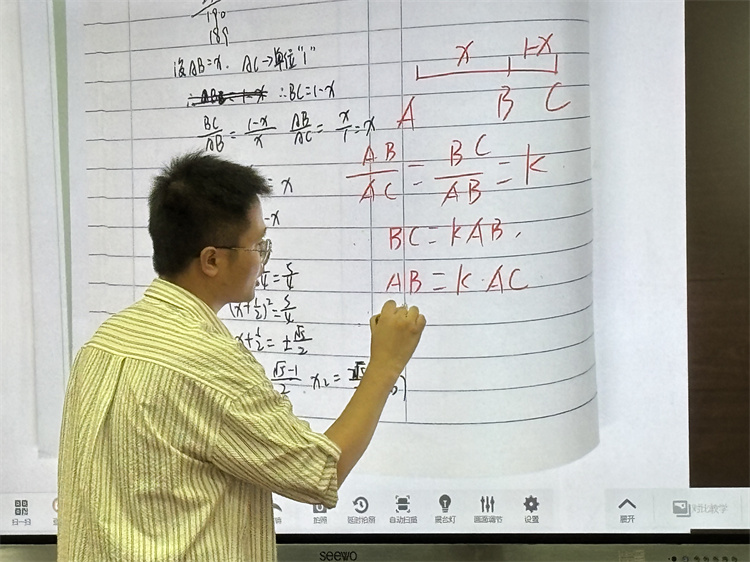 190
189
设AB=x. AC→单位"1"
∴BC=1-x
BC/AB = (1-x)/x AB/AC = x/1 = x
= x
-x
= 5/4
(x+1/2)²=5/4
x+1/2=±√5/2
√5-1/2 x₂=
x 1-x
A B C
AB/AC = BC/AB = k
BC=kAB,
AB=k·AC
扫一扫 拍照 延时拍照 自动扫描 展台灯 画面调节 设置 展开 对比教学
seewo